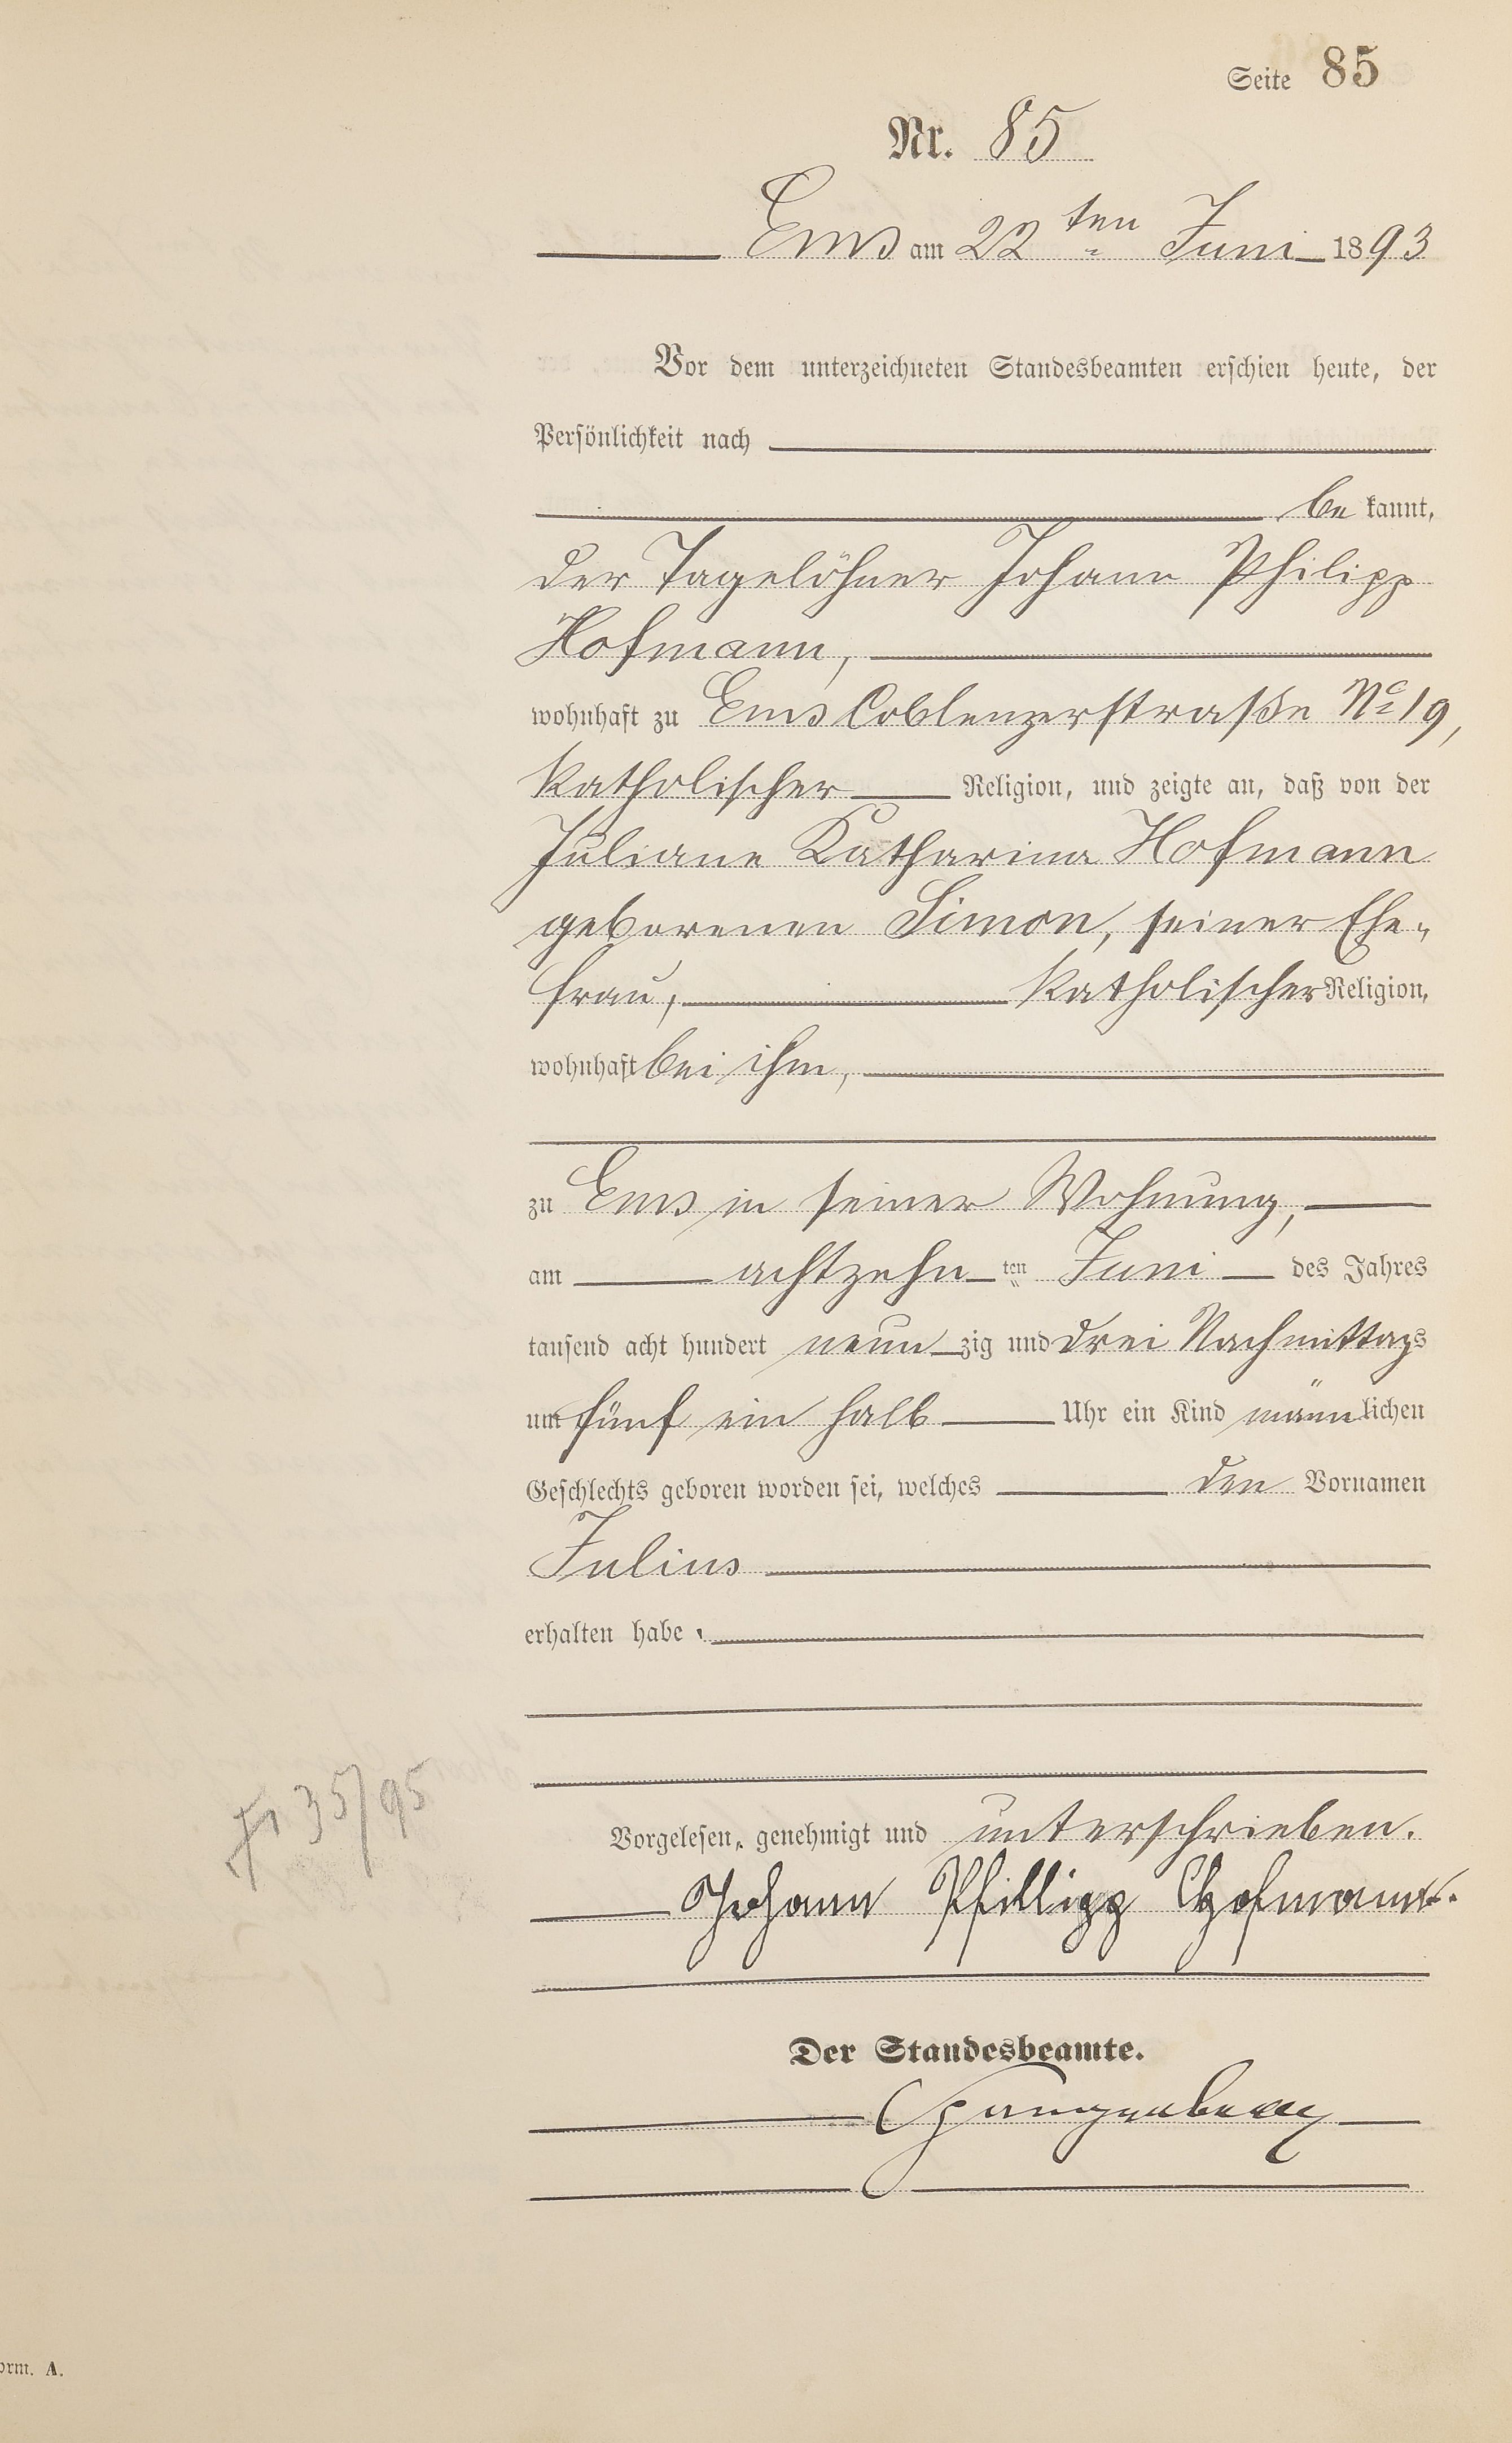 Seite 85
Nr. 85
Ems am 22ten Juni 1893
Vor dem unterzeichneten Standesbeamten erschien heute, der
Persönlichkeit nach
be kannt,
der Tagelöhner Johann Philipp
Hofmann,
wohnhaft zu Ems Coblenzerstraße No 19,
katholischer Religion, und zeigte an, daß von der
Juliane Katharina Hofmann
geborenen Simon, seiner Ehe-
frau, katholischer Religion,
wohnhaft bei ihm,
zu Ems in seiner Wohnung,
am achtzehn ten Juni des Jahres
tausend acht hundert neun zig und drei Nachmittags
um fünf ein halb Uhr ein Kind männlichen
Geschlechts geboren worden sei, welches den Vornamen
Julius
erhalten habe.
35/95
Vorgelesen, genehmigt und unterschrieben.
Johann Phillipp Hofmann.
Der Standesbeamte.
Spangenberg
orm. A.